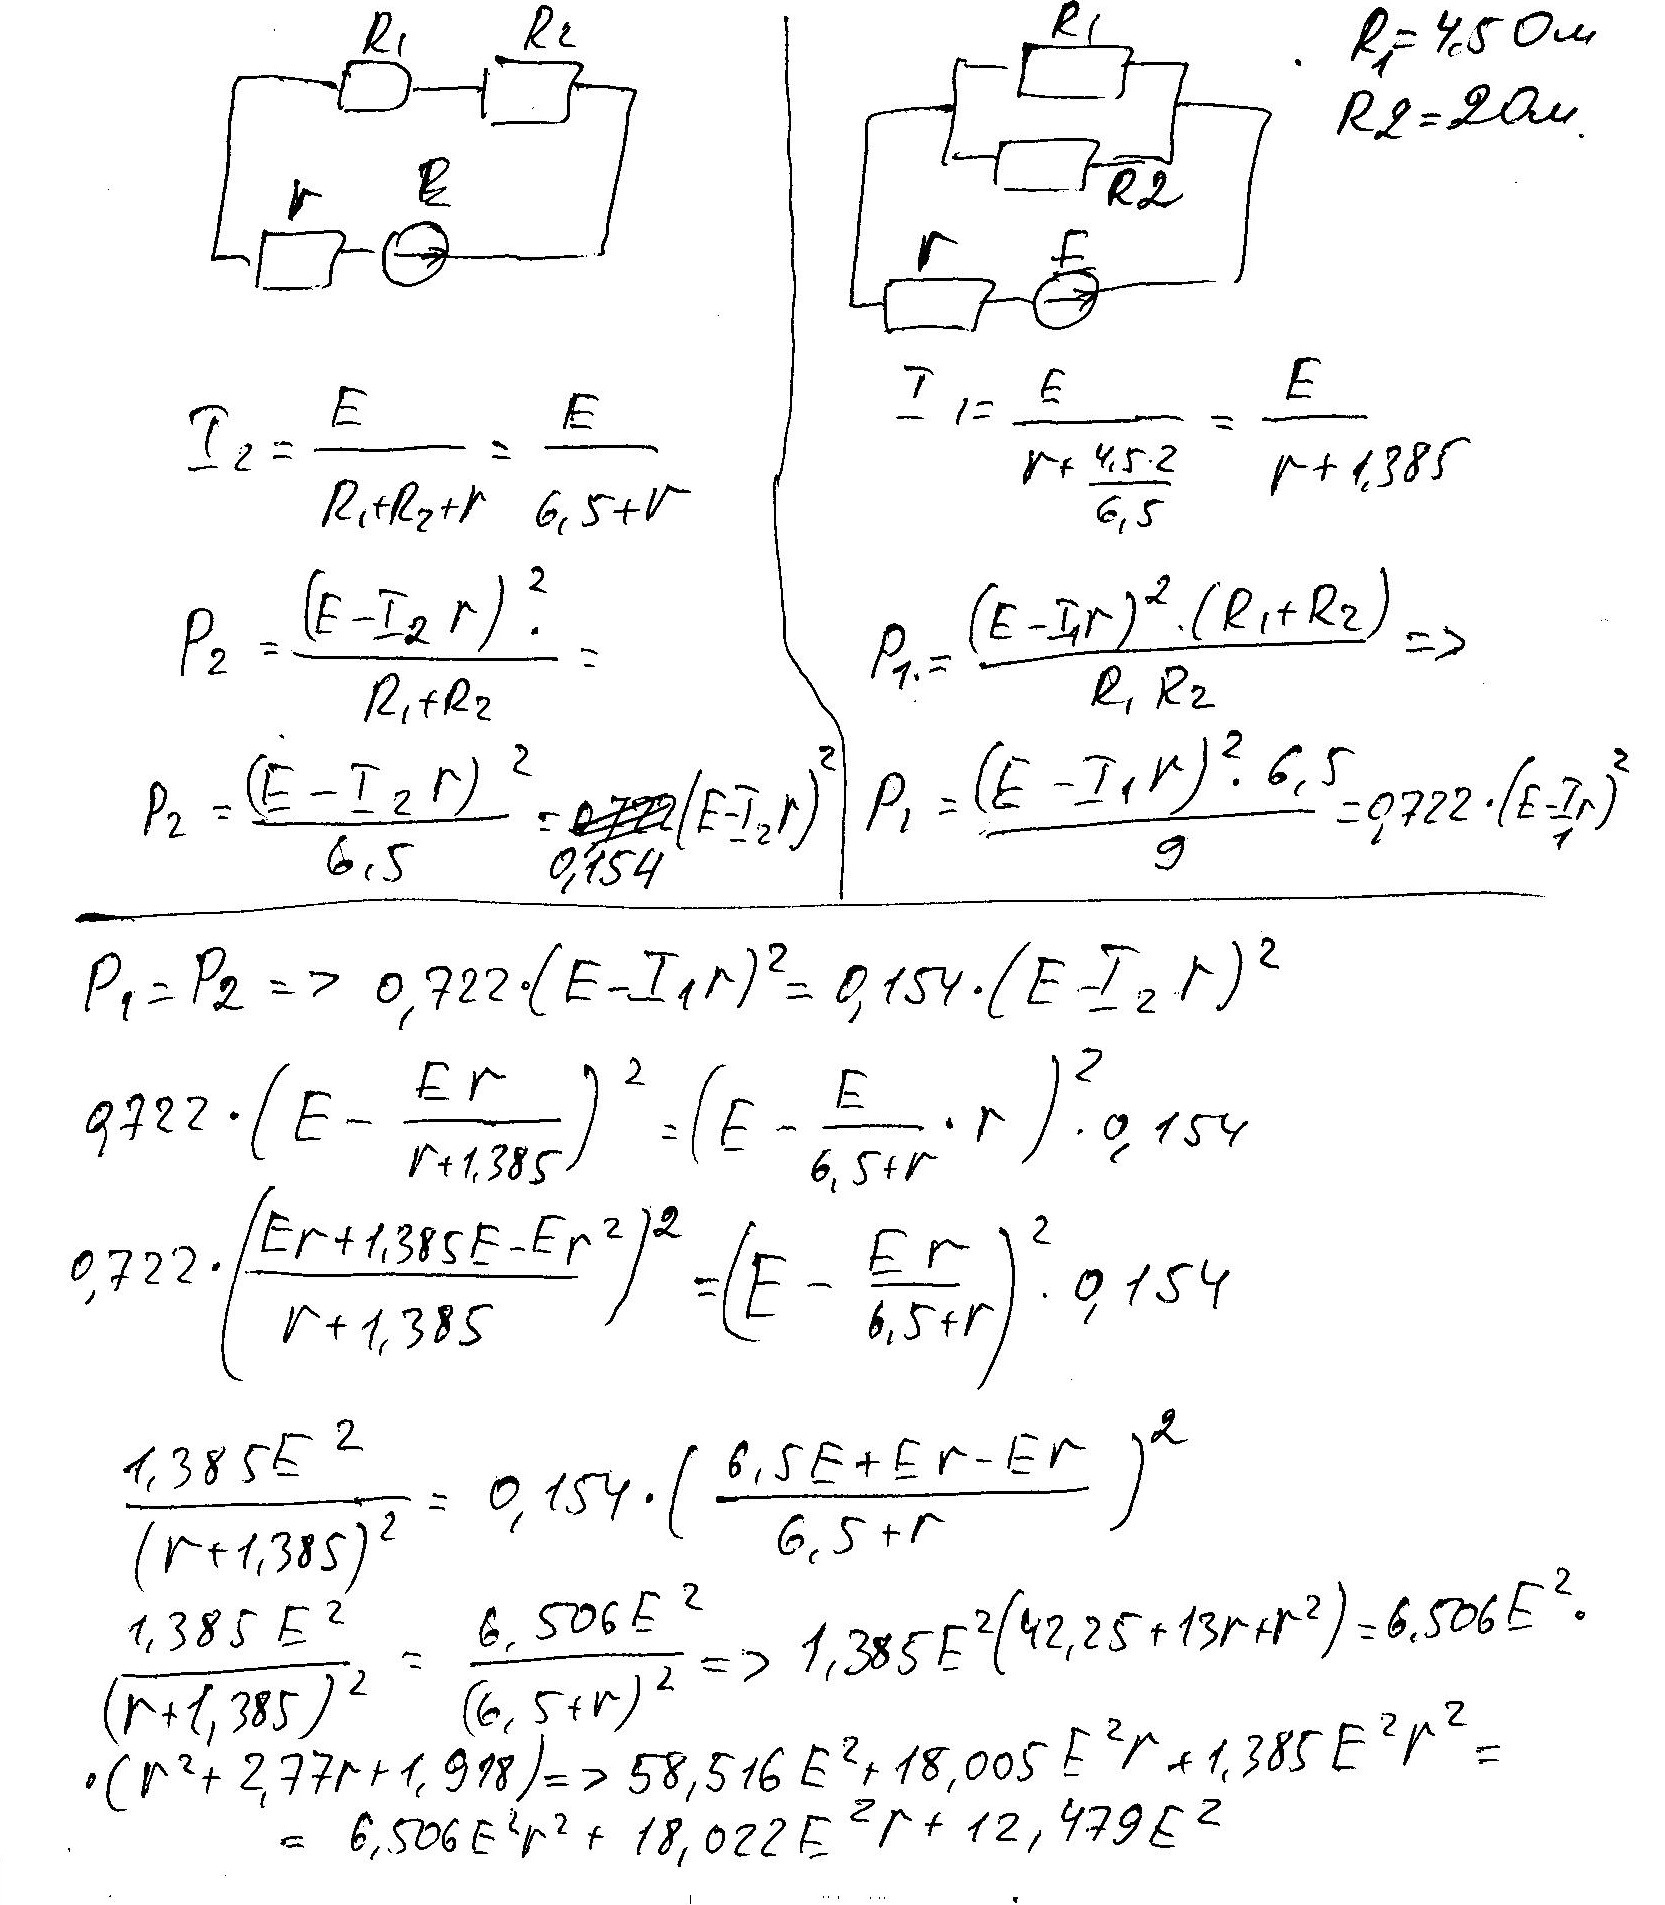 R1 R2
r E
R1
R2
r E
R1 = 4,5 Ом
R2 = 2 Ом.
I2 = E / (R1+R2+r) = E / (6,5+r)
P2 = (E-I2 r)^2 · / (R1+R2) =
P2 = (E-I2 r)^2 / 6,5 = 0,154 (E-I2 r)^2
I1 = E / (r + 4,5·2 / 6,5) = E / (r+1,385)
P1. = (E-I1r)^2 · (R1+R2) / (R1 R2) =>
P1 = (E-I1r)^2 · 6,5 / 9 = 0,722 · (E-I1r)^2
P1 = P2 => 0,722·(E-I1r)^2 = 0,154·(E-I2 r)^2
0,722·(E - Er / (r+1,385))^2 = (E - E / (6,5+r) · r)^2 · 0,154
0,722·((Er+1,385E-Er^2) / (r+1,385))^2 = (E - Er / (6,5+r))^2 · 0,154
1,385E^2 / (r+1,385)^2 = 0,154·((6,5E+Er-Er) / (6,5+r))^2
1,385E^2 / (r+1,385)^2 = 6,506E^2 / (6,5+r)^2 => 1,385E^2(42,25+13r+r^2) = 6,506E^2·
·(r^2+2,77r+1,918) => 58,516E^2+18,005E^2r+1,385E^2r^2 =
= 6,506E^2r^2+18,022E^2r+12,479E^2